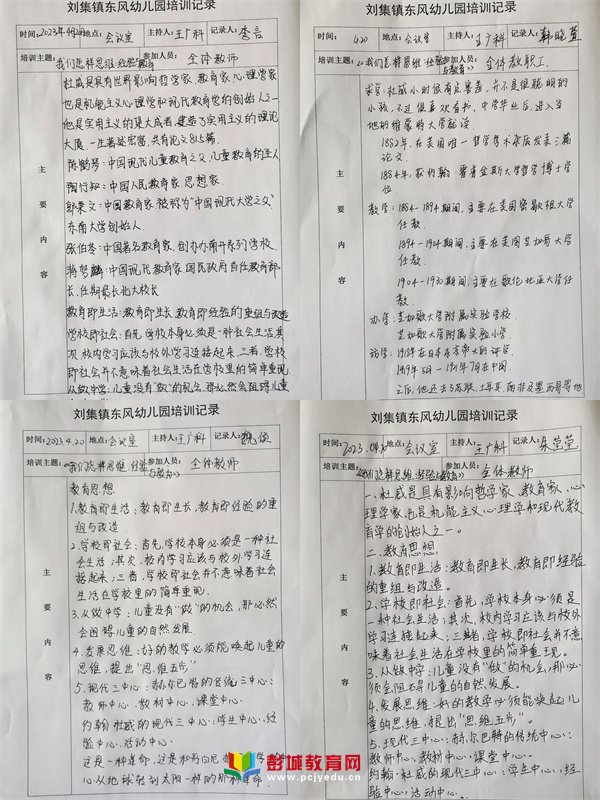 刘集镇东风幼儿园培训记录
时间:2023年4月20 地点:会议室 主持人:王广科 记录人:李言
培训主题:《我们怎样思维·经验与教育》 参加人员:全体教师
主要内容
杜威是具有世界影响哲学家、教育家、心理学家
也是机能主义心理学和现代教育学的创始人之一
他是实用主义的集大成者,建造了实用主义的理论
大厦,一生著述宏富,共有论文815篇.
陈鹤琴:中国现代儿童教育之父,儿童教育的圣人
陶行知:中国人民教育家、思想家.
郭秉文:中国教育家,被称为"中国现代大学之父"
东南大学创始人.
张伯苓:中国著名教育家,创办南开系列学校.
蒋梦麟:中国现代教育家,国民政府首任教育部
长,任期最长北大校长
教育即生活:教育即生长,教育即经验的重组与改造
学校即社会:首先,学校本身必须是一种社会生活,其
次,校内学习应该与校外学习连接起来,三者,学校
即社会并不意味着社会生活在学校里的简单重现
从做中学:儿童没有"做"的机会,那必然会阻碍儿童
刘集镇东风幼儿园培训记录
时间: 4.20 地点:会议室 主持人:王广科 记录人:韩晓萱
培训主题:《我们怎样思维·经验与教育》 参加人员:全体教职工.
主要内容
求学:杜威小时候有点害羞,并不是很聪明的
小孩,不过很喜欢看书,中学毕业后,进入当
地的维蒙特大学就读
1882年,在美国唯一哲学学术杂志发表三篇
论文.
1884年,获约翰·霍普金斯大学哲学博士学
位.
教学:1884-1894期间,主要在美国密歇根大学
任教
1894-1904期间,主要在美国芝加哥大学
任教.
1904-1930期间,主要在哥伦比亚大学任
教.
办学:芝加哥大学附属实验学校.
芝加哥大学附属实验小学.
访学:1918年在日本东京帝大的讲学.
1919年5月-1921年7月在中国.
之后,他还去了苏联、土耳其、南非及墨西哥等地
刘集镇东风幼儿园培训记录
时间:2023.4.20 地点:会议室 主持人:王广科 记录人:
培训主题:《我们怎样思维·经验与教育》 参加人员:全体教师
主要内容
教育思想
1.教育即生活:教育即生长,教育即经验的重
组与改造
2.学校即社会:首先,学校本身必须是一种社
会生活;其次,校内学习应该与校外学习连
接起来;三者,学校即社会并不意味着社会
生活在学校里的简单重现.
3.从做中学:儿童没有"做"的机会,那必然
会阻碍儿童的自然发展
4.发展思维:好的教学必须能唤起儿童的
思维,提出"思维五步"
5.现代三中心:赫尔巴特的传统三中心:
教师中心、教材中心、课堂中心.
约翰·杜威的现代三中心:学生中心、经
验中心、活动中心.
这是一种革命,这是和哥白尼
心从地球转到太阳一样的那种革命
刘集镇东风幼儿园培训记录
时间:2023. 地点:会议室 主持人:王广科 记录人:
培训主题:《我们怎样思维·经验与教育》 参加人员:全体教师
主要内容
一、杜威是具有影响哲学家、教育家、心
理学家,也是机能主义心理学和现代教
育学的创始人之一。
二.教育思想
1.教育即生活:教育即生长,教育即经验
的重组与改造。
2.学校即社会:首先,学校本身必须是
一种社会生活;其次,校内学习应该与校外
学习连接起来;三者,学校即社会并不意
味着社会生活在学校里的简单重现。
3.从做中学:儿童没有"做"的机会,那必
须会阻碍儿童的自然发展。
4.发展思维:好的教学必须能唤起儿
童的思维,提出"思维五步"。
5.现代三中心:赫尔巴特的传统中心:
教师中心、教材中心、课堂中心.
约翰·杜威的现代三中心:学生中心、经
验中心、活动中心
彭城教育网
www.pcjyedu.cn